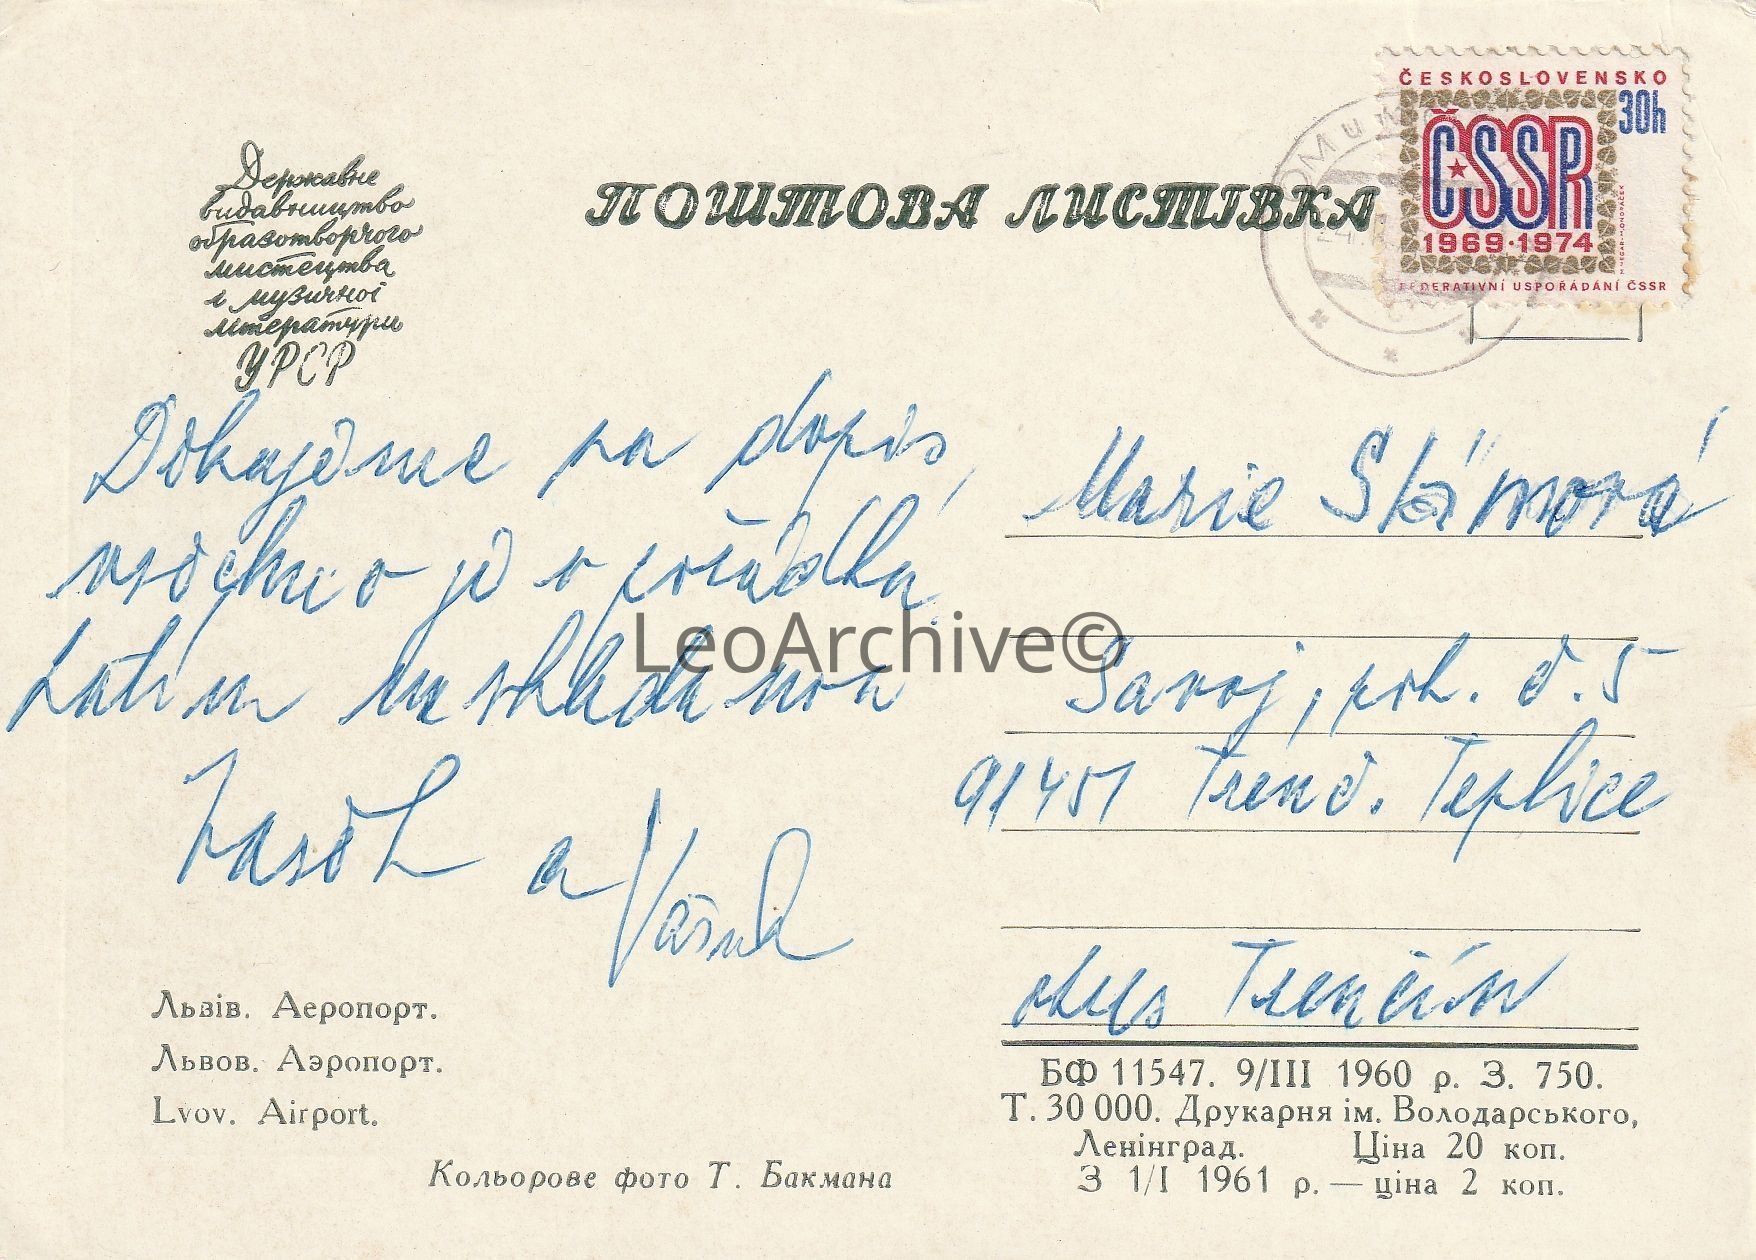 ČESKOSLOVENSKO
30h
ČSSR
1969·1974
FEDERATIVNÍ USPOŘÁDÁNÍ ČSSR
Державне
видавництво
образотворчого
мистецтва
і музичної
літератури
УРСР
ПОШТОВА ЛИСТІВКА
Děkujeme za dopis,
všechno je v pořádku.
Zatím na shledanou
a
Marie
Savoj, pok. č. 5
91451 Trenč. Teplice
okres Trenčín
LeoArchive©
Львів. Аеропорт.
Львов. Аэропорт.
Lvov. Airport.
Кольорове фото Т. Бакмана
БФ 11547. 9/III 1960 р. З. 750.
Т. 30 000. Друкарня ім. Володарського,
Ленінград. Ціна 20 коп.
З 1/I 1961 р. — ціна 2 коп.